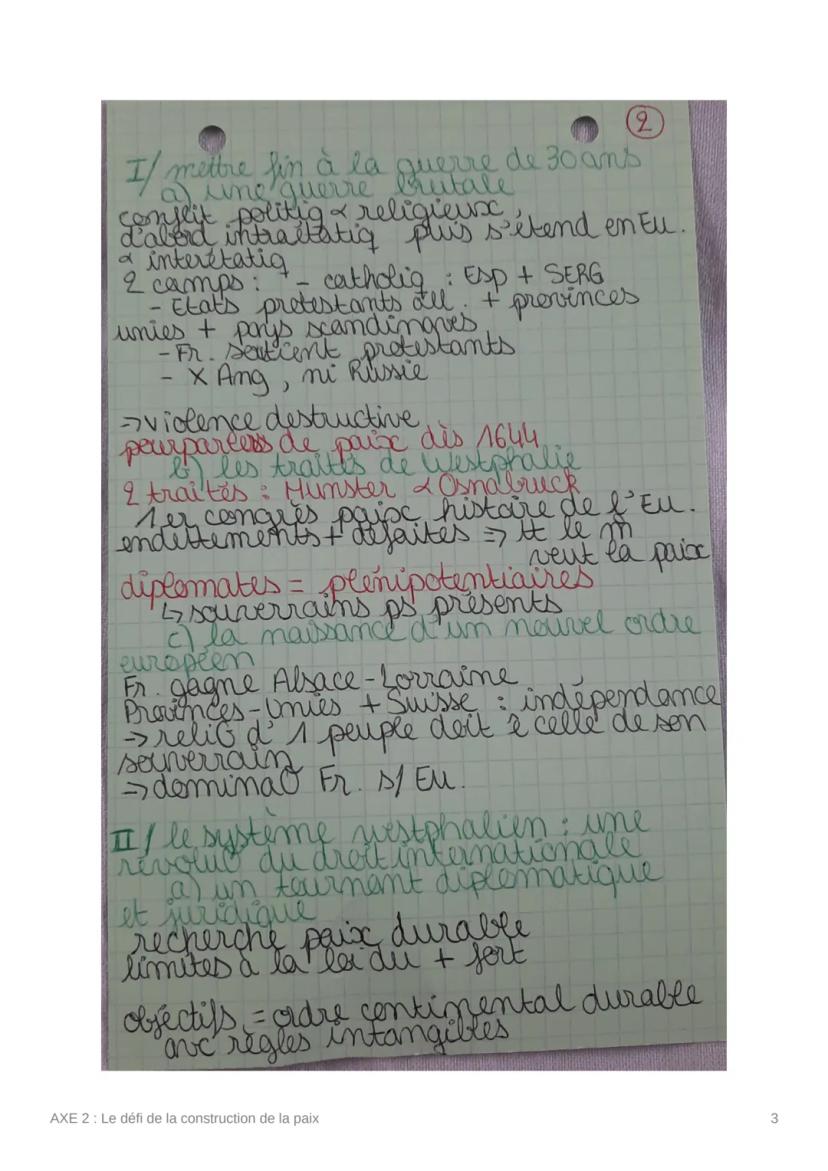 2
I/ mettre fin à la guerre de 30 ans
a) une guerre brutale
conflit politiq & religieux,
d'abord intraétatiq puis s'étend en Eu.
& interétatiq
2 camps : - catholiq : ESP + SERG
- Etats protestants all. + provinces
unies + pays scandinaves
- Fr. soutient protestants
- X Ang, ni Russie
⇒ violence destructive
pourparlers de paix dès 1644
b) les traités de Westphalie
2 traités : Munster & Osnabruck
1er congrès paix histoire de l'Eu.
endettements + défaites ⇒ tt le m̂
veut la paix
diplomates = plénipotentiaires
↳ souverrains ps présents
c) la naissance d'un nouvel ordre
européen
Fr. gagne Alsace-Lorraine
Provinces-Unies + Suisse : indépendance
→ relið d'1 peuple doit ê celle de son
souverrain
⇒ dominað Fr. s/ Eu.
II/ le système westphalien : une
révoluð du droit internationale
a) un tournant diplomatique
et juridique
recherche paix durable
limites à la loi du + fort
objectifs = ordre continental durable
avc règles intangibles
AXE 2 : Le défi de la construction de la paix
3